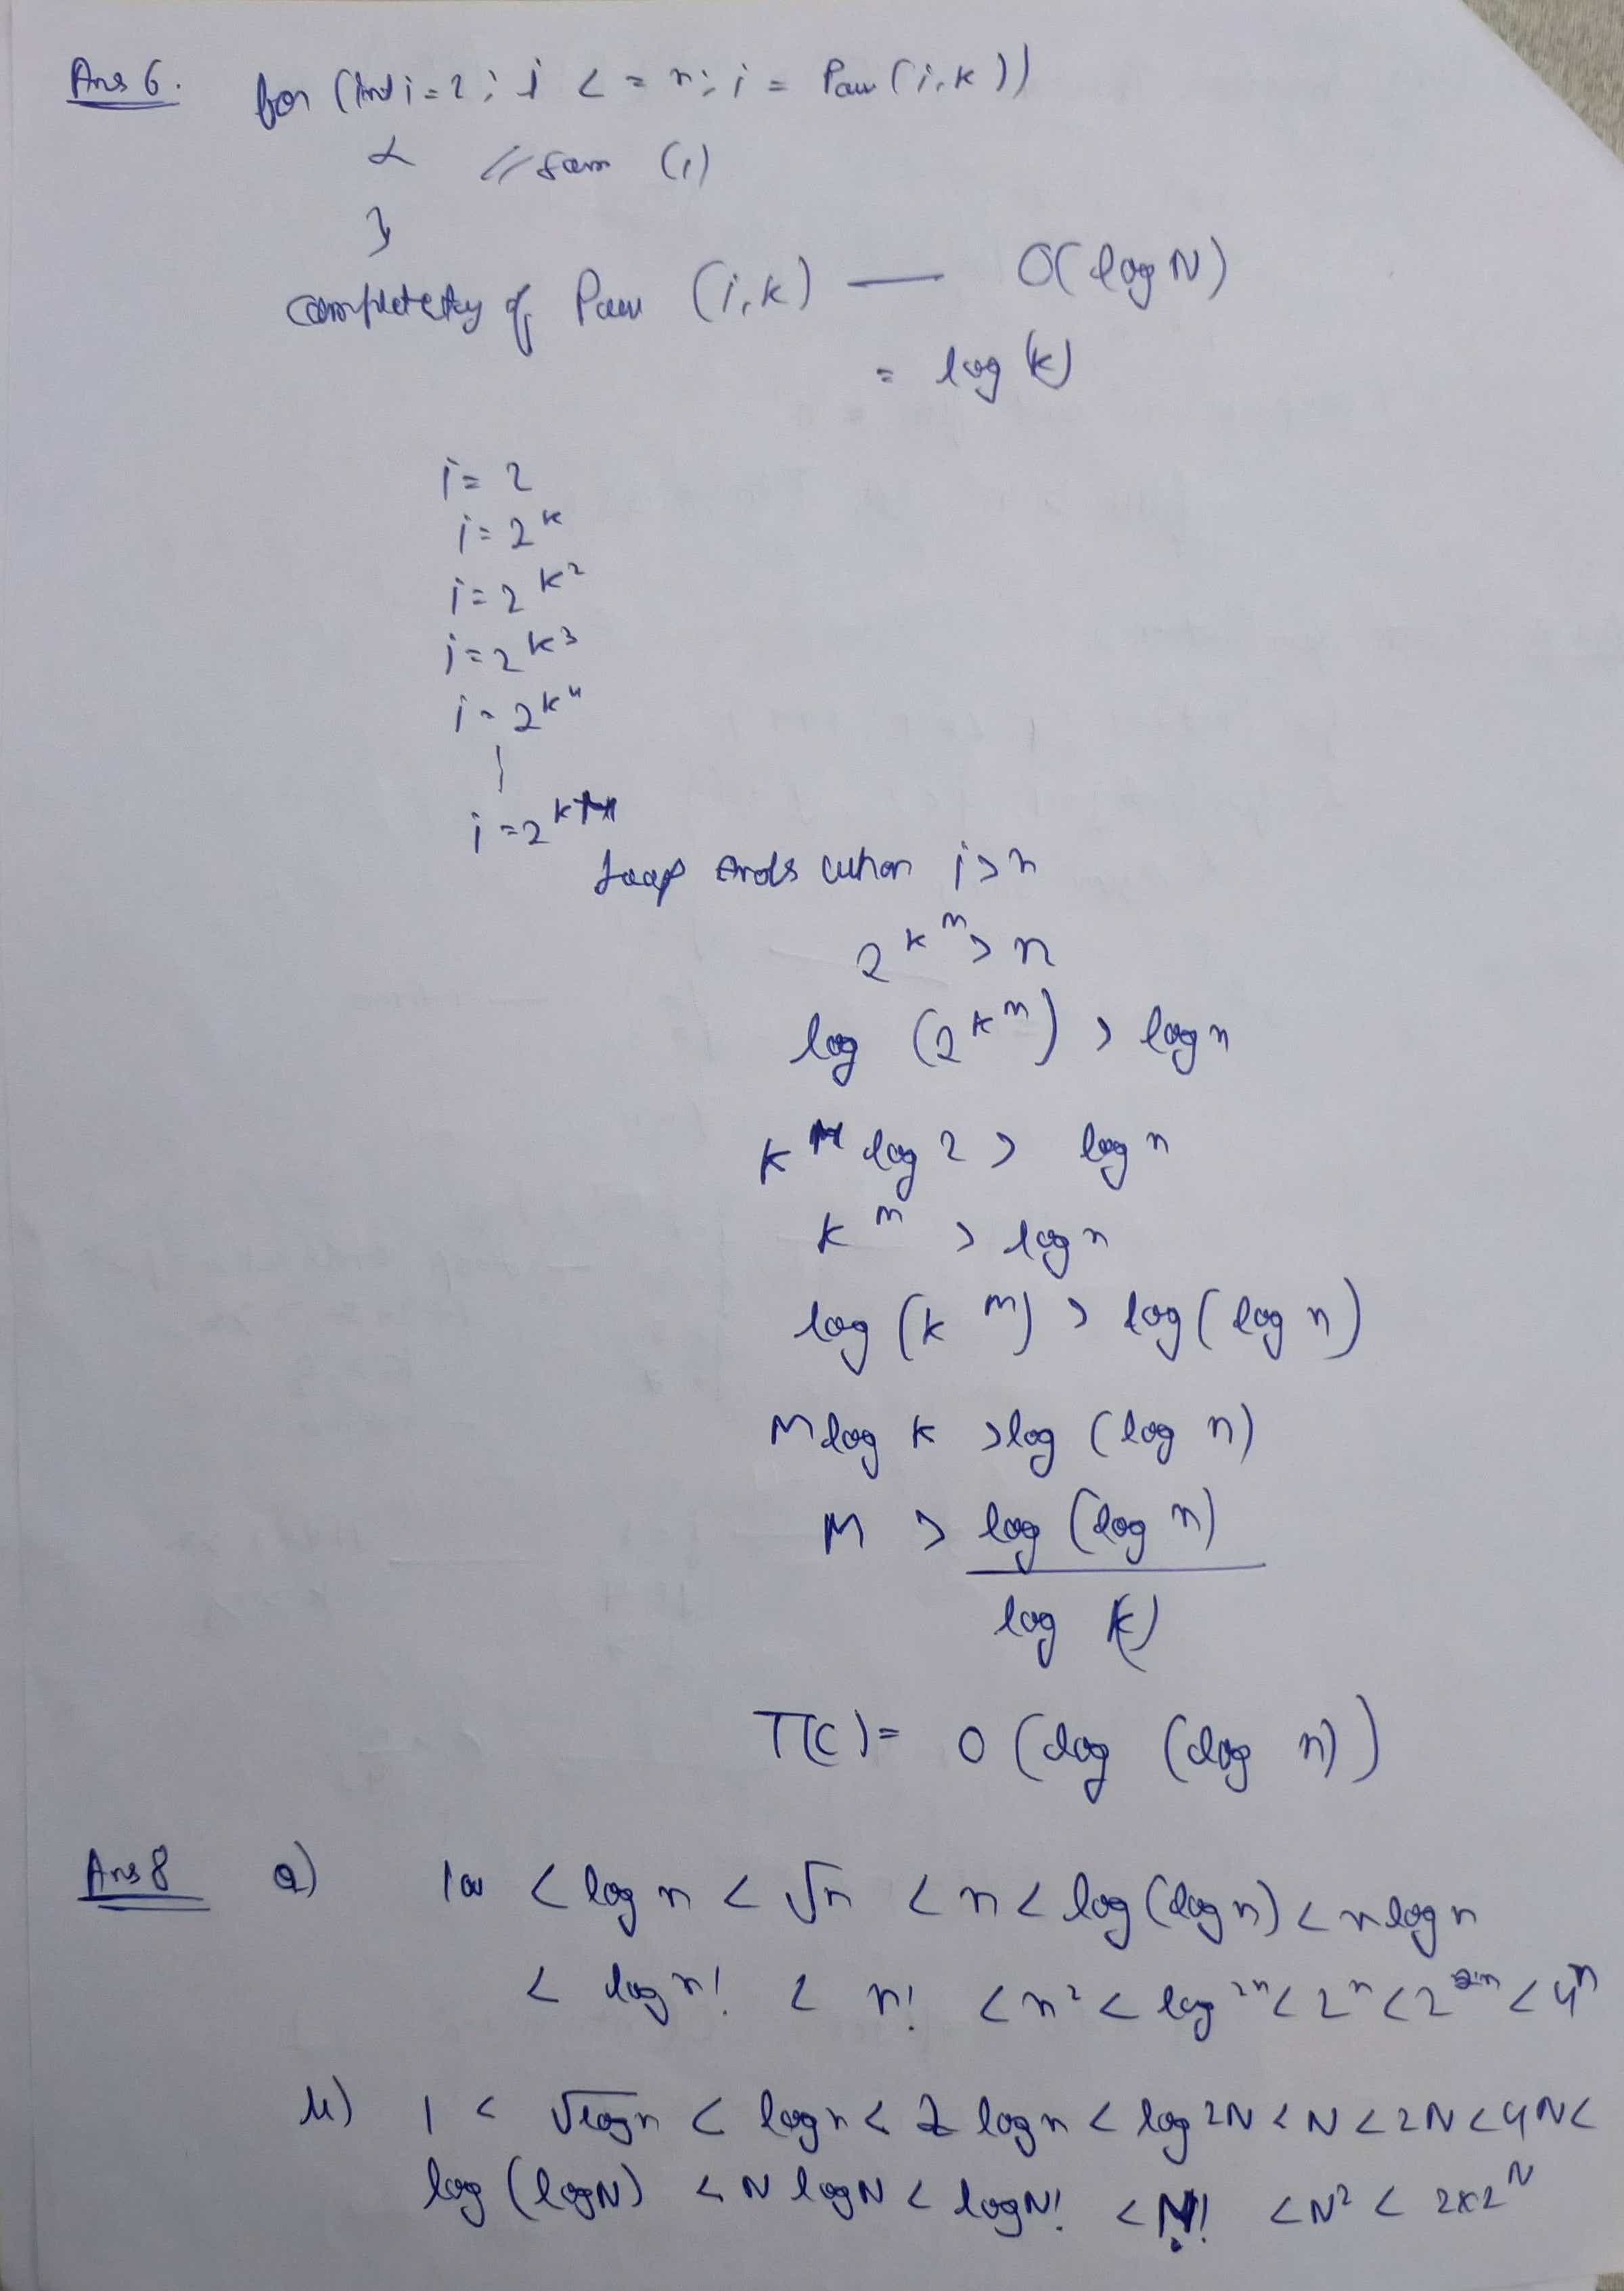 Ans 6. for (int i=2; i <= n; i = Pow(i,k))
{ // sum (1)
}
complexity of Pow (i,k) — O(log N)
= log (k)
i = 2
i = 2^k
i = 2^k^2
i = 2^k^3
i = 2^k^4
i = 2^k
Loop ends when i > n
2^k^m > n
log (2^k^m) > log n
k^M log 2 > log n
k^m > log n
log (k^m) > log (log n)
M log k > log (log n)
M > log (log n)
log (k)
T(C) = O (log (log n))
Ans 8 a) 100 < log n < √n < n < log (log n) < n log n
< log n! < n! < n² < log^2n < 2^n < 2^2n < 4^n
1 < √log n < log n < 2 log n < log 2N < N < 2N < 4N <
log (log N) < N log N < log N! < N! < N² < 2x2^N